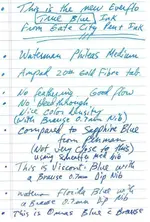 • This is the new Everflo
True Blue Ink
From Gate City Pens Ink
• Waterman Phileas Medium
• Ampad 20th Gold Fibre Pad
• No Feathering Good Flow
• No Bleedthrough
• Nice Color Density
(with Brause 0.7mm Nib)
• Compared to Sapphire Blue
from Penman
(Not very close as this)
using Med Nib
• This is Visconti Blue with
a Brause 0.7mm Dip Nib
• Florida Blue with
a Brause 0.7mm Dip Nib
• This is Omas Blue & Brause